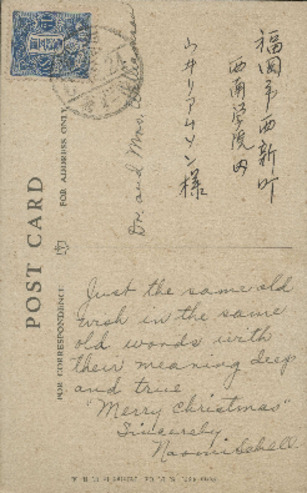 POST CARD
FOR ADDRESS ONLY
FOR CORRESPONDENCE
福岡市西新町
西南学院内
ウヰリアムソン様
Dr. and Mrs. Williamson
Just the same old
wish in the same
old words with
their meaning deep
and true
"Merry Christmas"
Sincerely
Naomi Schell